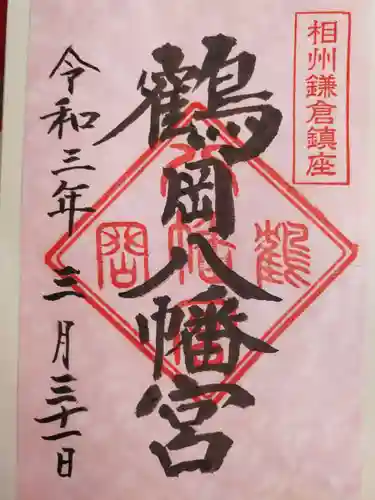 相州鎌倉鎮座
鶴岡八幡宮
令和三年三月三十一日